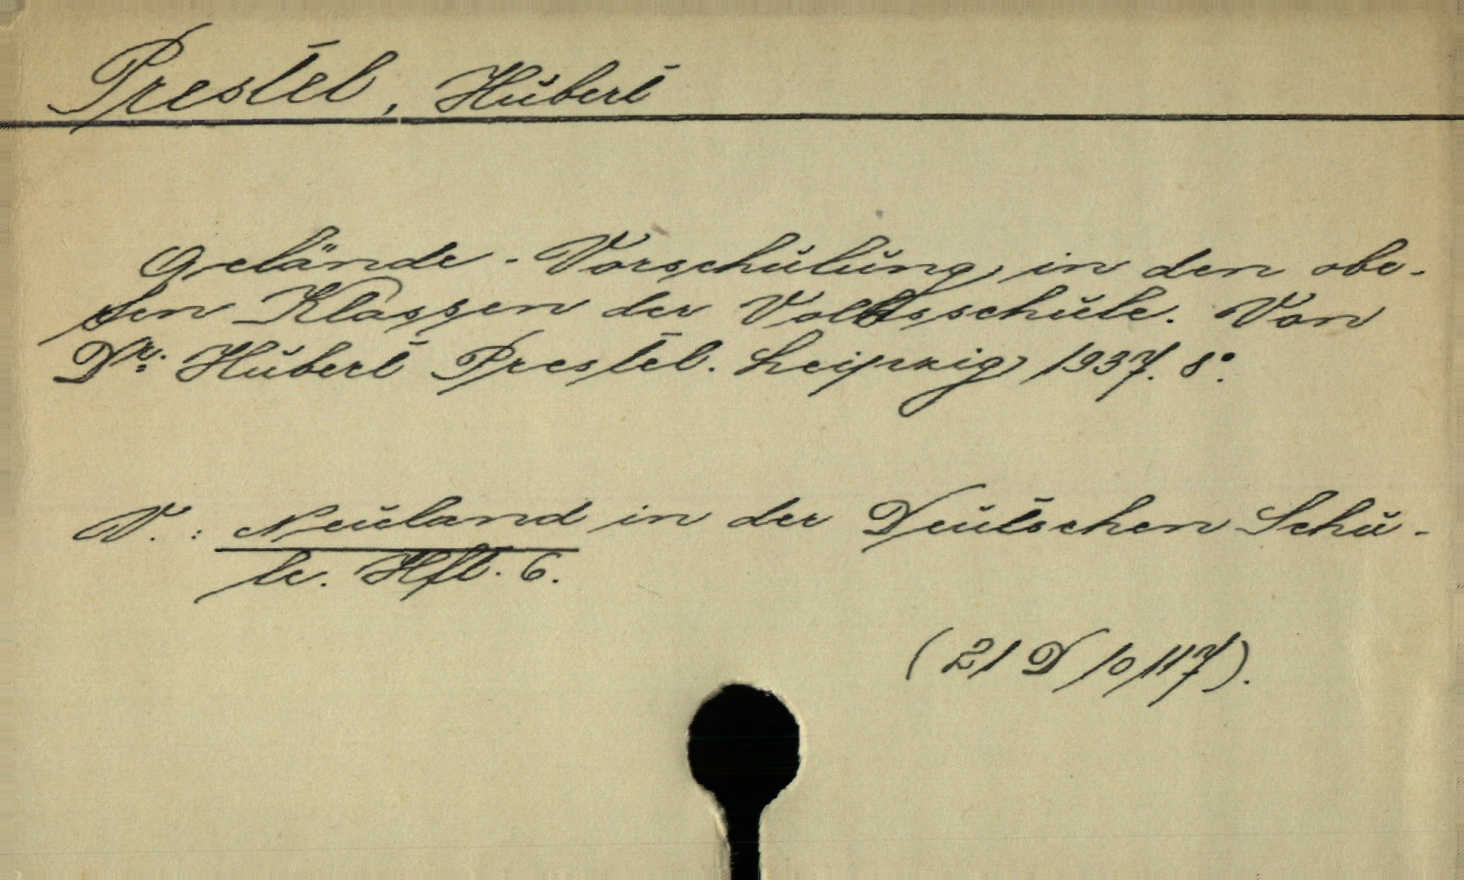 Prestel, Hubert
Gelände-Vorschulung in den obe-
ren Klassen der Volksschule. Von
Dr. Hubert Prestel. Leipzig 1937. 8°.
V.: Neuland in der Deutschen Schu-
le. Hft. 6.
(21 D/10/117).